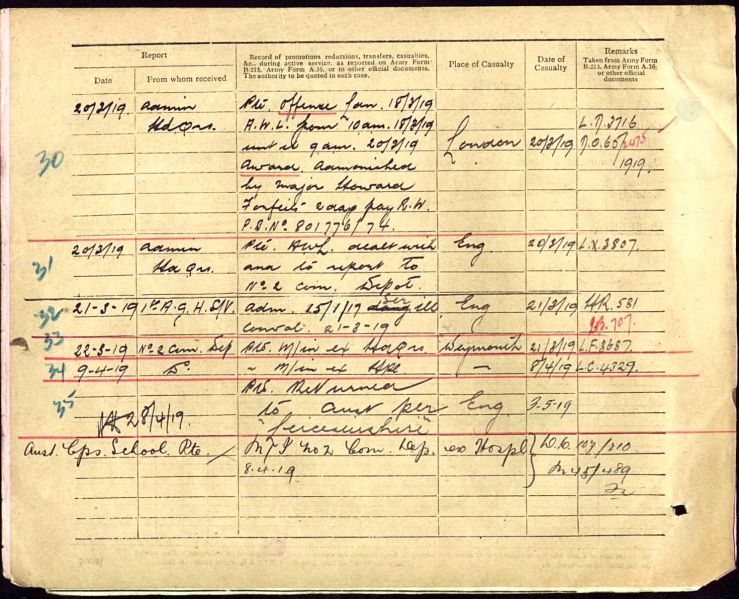 Report
Record of promotions reductions, transfers, casualties,
&c., during active service, as reported on Army Form
B.213, Army Form A.36, or in other official documents.
The authority to be quoted in each case.
Place of Casualty
Date of
Casualty
Remarks
Taken from Army Form
B.213, Army Form A.36,
or other official
documents
Date
From whom received
20/3/19 Admin Pte. Offence Lon. 18/3/19
Hdqrs. A.W.L. from 10 am. 18/3/19 L.N.3716
30 until 9 am. 20/3/19 London 20/3/19
Award. Admonished 1919.
by Major Howard
Forfeits 2 days pay R.W.
P.B.No. 801776/74.
20/3/19 Admin Pte. AWL. dealt with Eng 20/3/19 L.X.3807.
31 Hdqrs. and to report to
No 2 Com. Depot.
32 21-3-19 1st A.G.H. S/V. Adm. 25/1/19 ill Eng 21/3/19 HR.531
33 Conval. 21-3-19
22-3-19 No 2 Com. Dep Pte. M/in ex Hdqrs. Weymouth 21/3/19 L.F.3687.
34 9-4-19 Do. " M/in ex — 8/4/19 L.C.4329.
35 Pte. Returned
28/4/19. to Aust per Eng. 3-5-19
"Leicestershire"
Aust. Cps. School. Pte. / M/I No 2 Com. Dep. ex Hospl D.O. 107/210.
8.4.19 M45/489